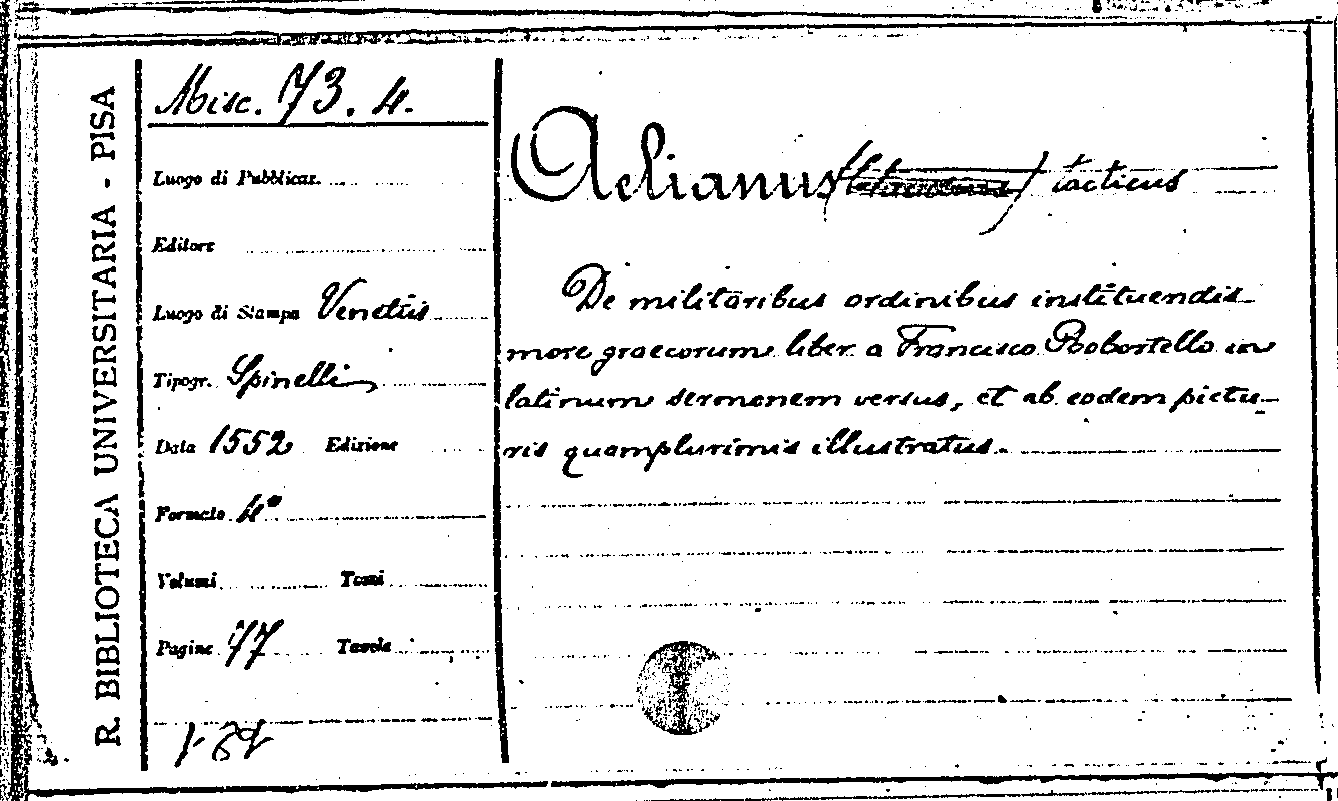 R. BIBLIOTECA UNIVERSITARIA - PISA
Misc. 73. 4.
Luogo di Pubblicaz.
Editore
Luogo di Stampa Venetiis
Tipogr. Spinelli
Data 1552 Edizione
Formato 4°
Volumi Tomi
Pagine 77 Tavole
Aelianus tacticus
De militaribus ordinibus instituendis
more graecorum liber a Francisco Robortello in
latinum sermonem versus, et ab eodem pictu-
ris quamplurimis illustratus.